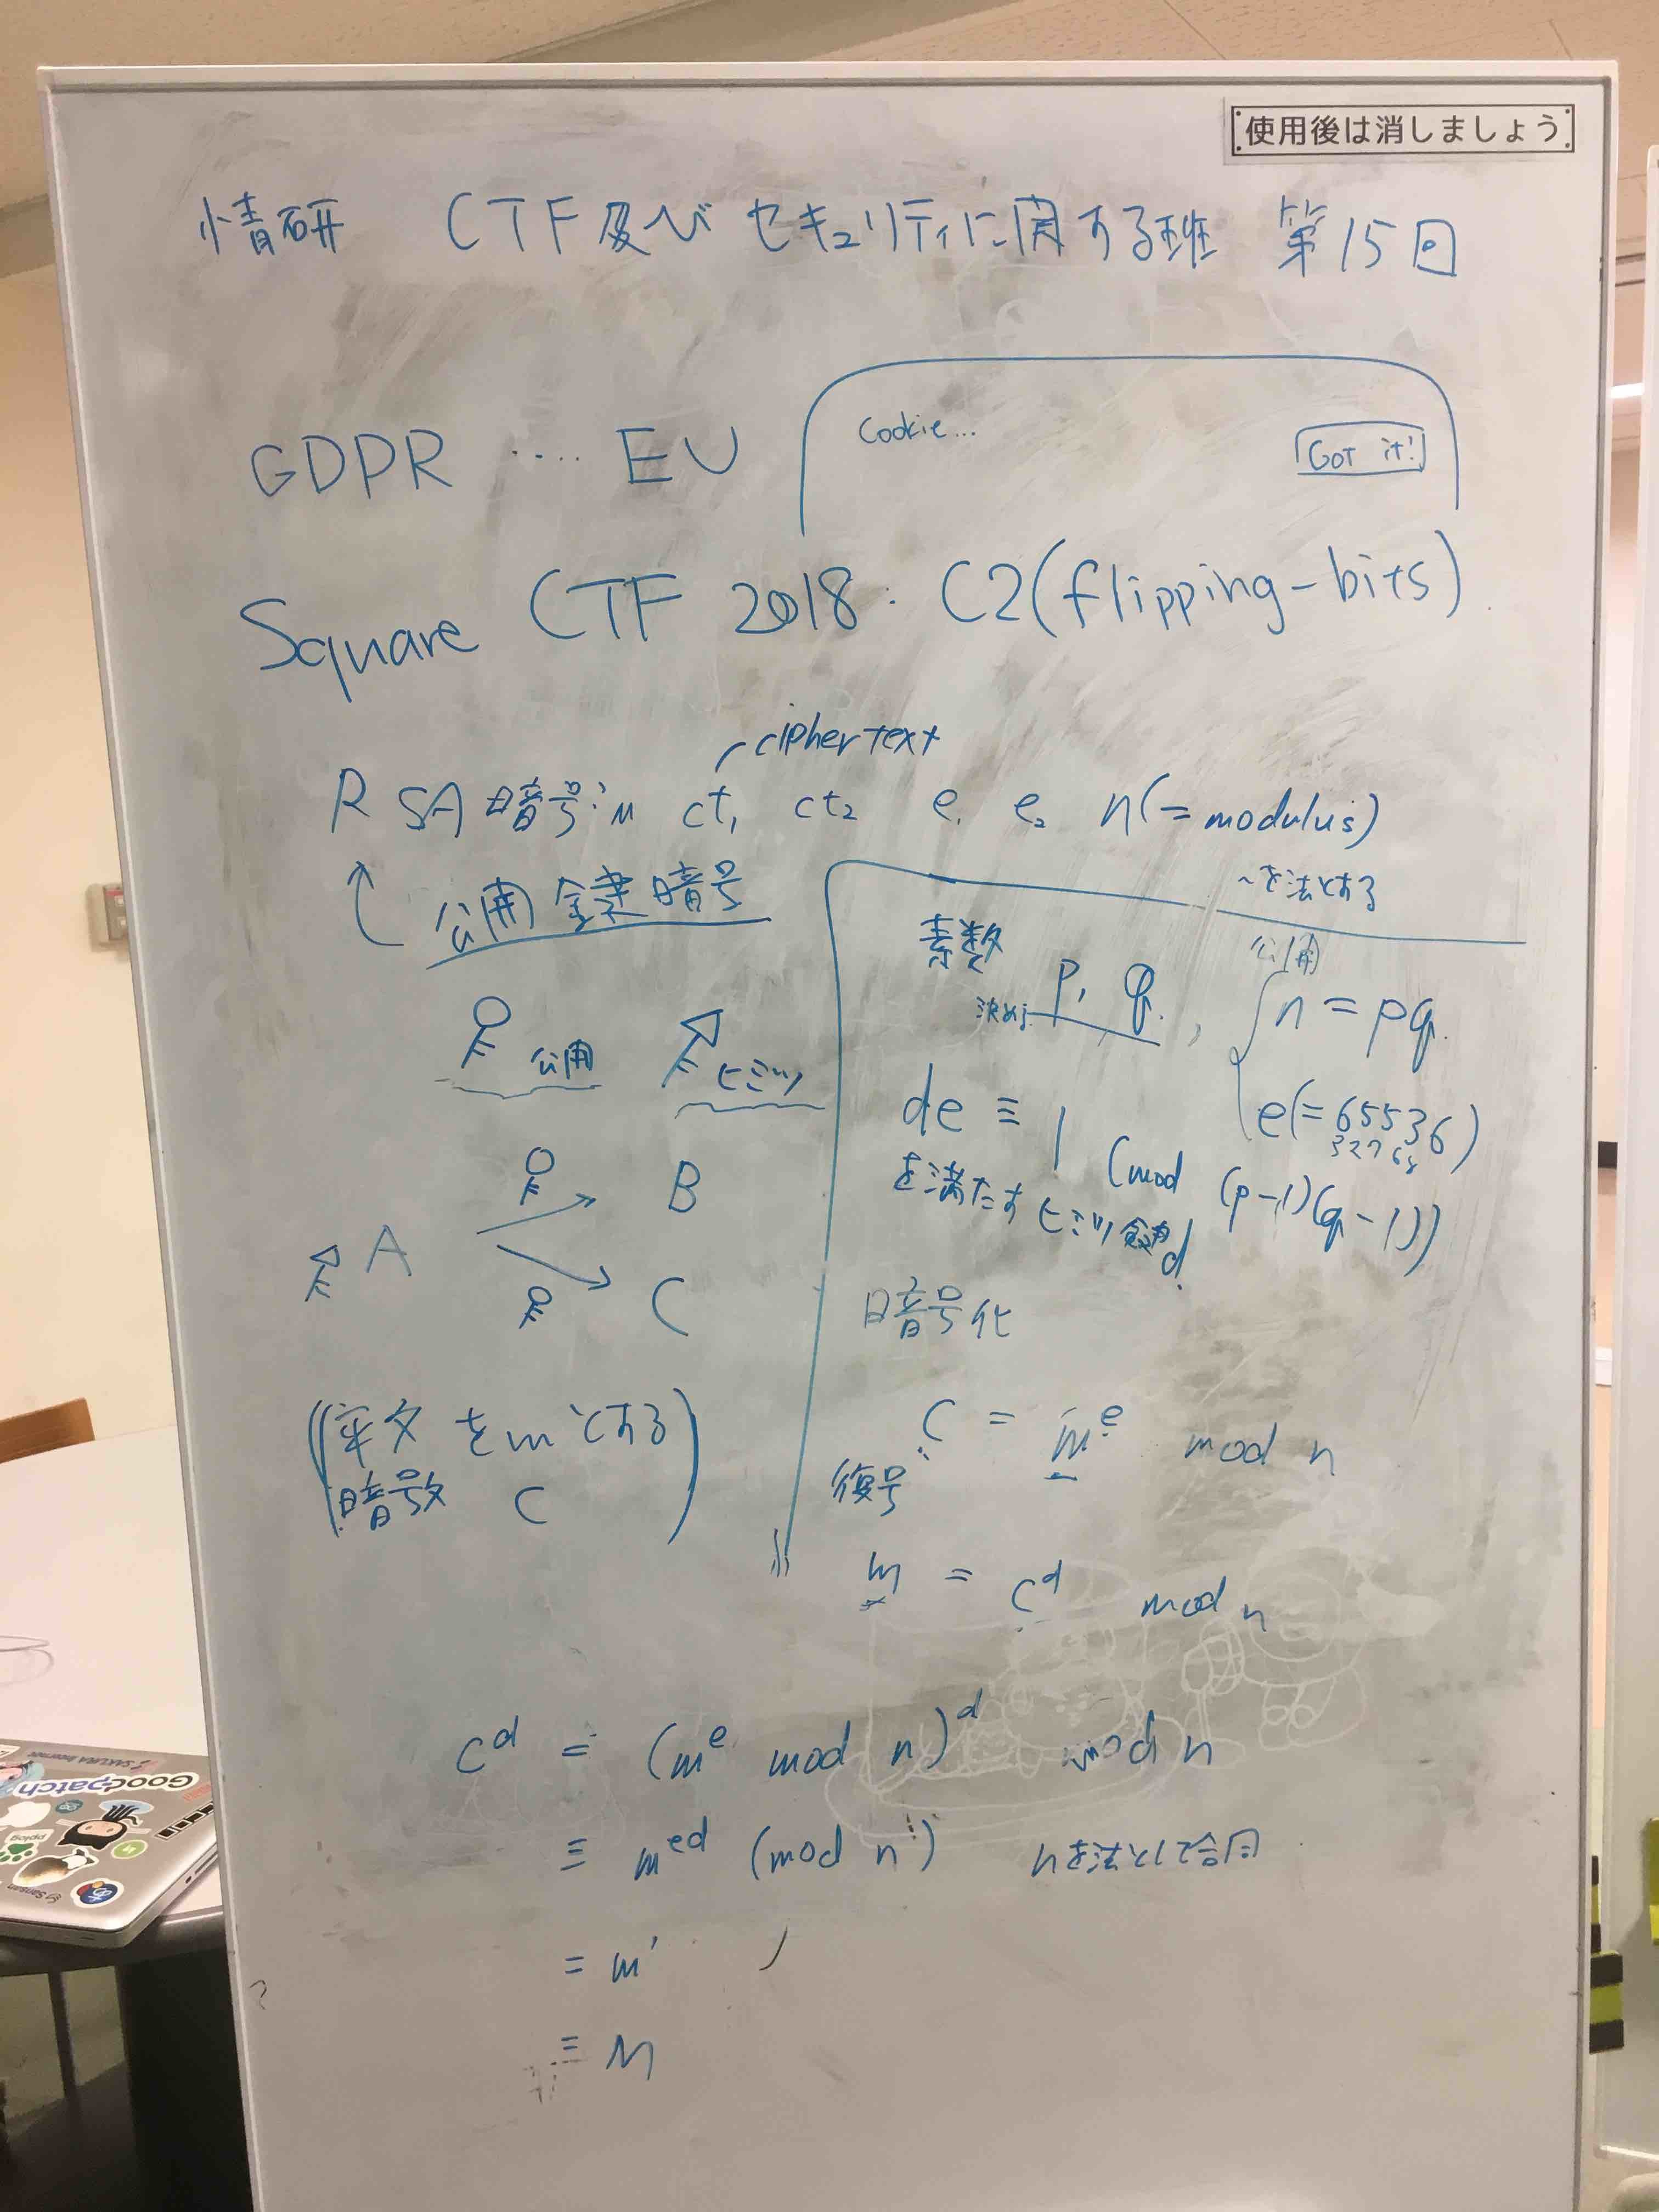 使用後は消しましょう
情研 CTF及びセキュリティに関する班 第15回
GDPR ···· EU
Cookie...
Got it!
Square CTF 2018: C2(flipping-bits)
ciphertext
RSA暗号: ct1 ct2 e1 e2 n(=modulus)
~を法とする
公開鍵暗号
公開
ヒミツ
A
B
C
(平文をmとする
暗号文 C)
素数
決める p, q,
公開
n = pq
e(=65536)
32768
de ≡ 1 (mod (p-1)(q-1))
を満たすヒミツ鍵d
暗号化
C = m^e mod n
復号
m = c^d mod n
c^d = (m^e mod n)^d mod n
≡ m^ed (mod n) nを法として合同
= m^1
≡ m
Goodpatch
SAKURA internet
Sansan